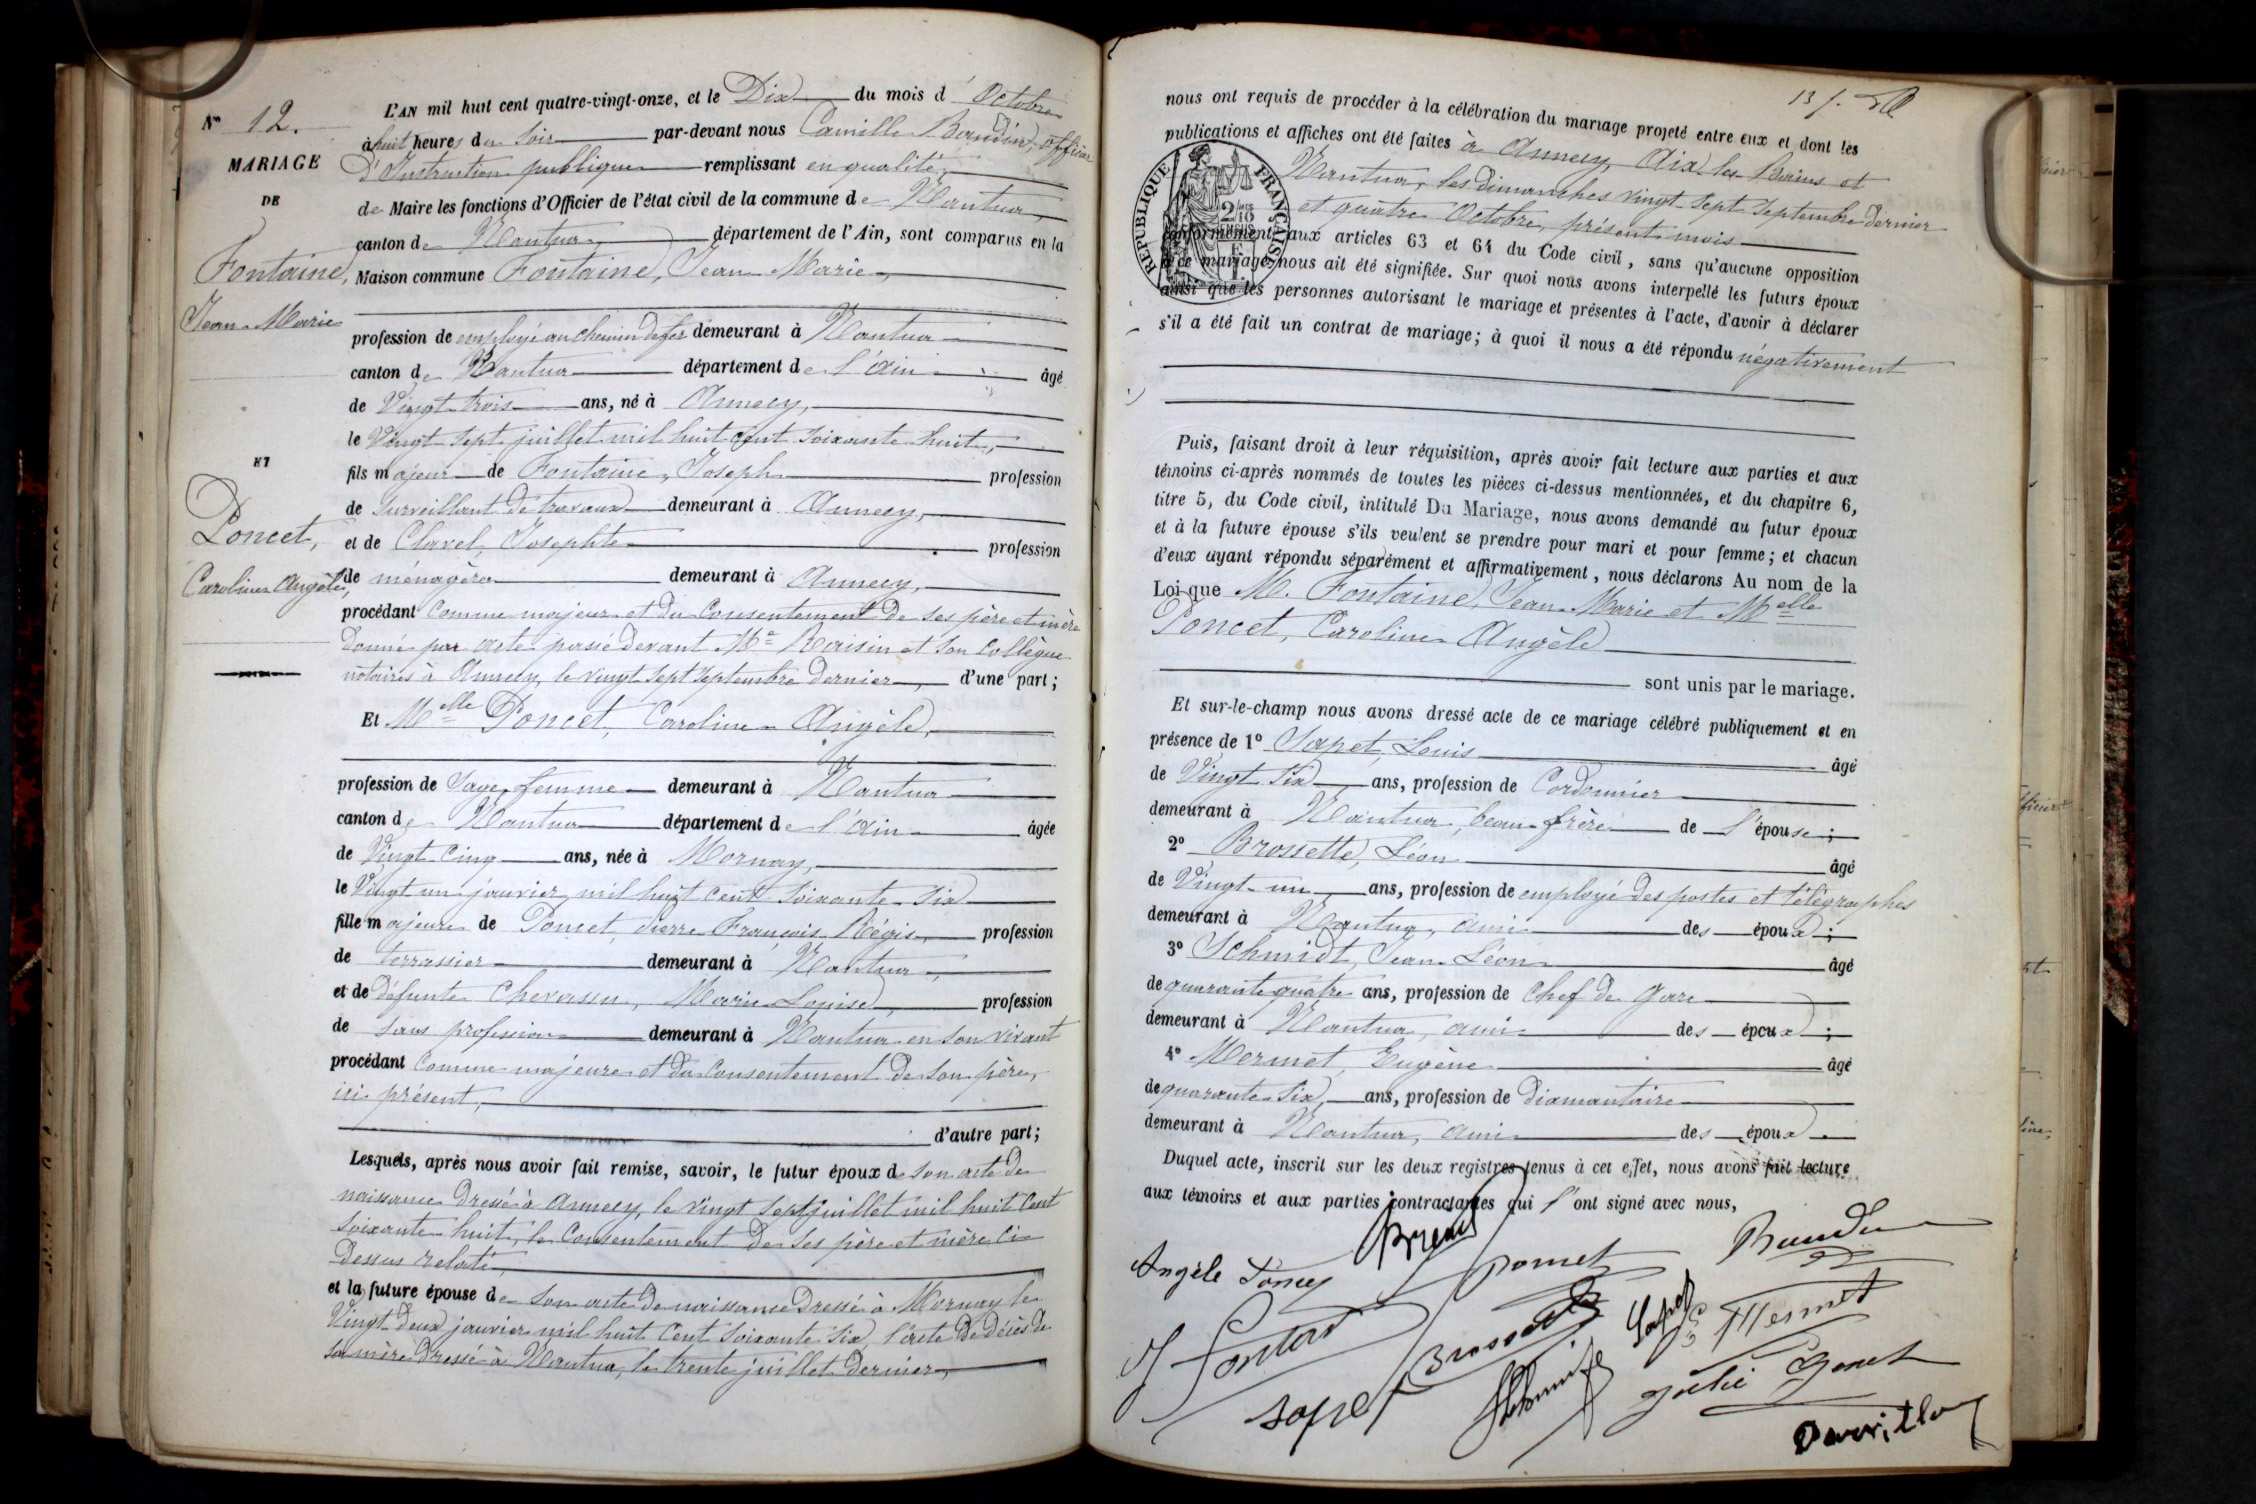 N° 12.
MARIAGE
DE
Fontaine,
Jean-Marie
ET
Poncet,
Caroline Angèle,
L'AN mil huit cent quatre-vingt-onze, et le Dix du mois d'Octobre
à huit heures du soir par-devant nous Camille Baudin, officier
d'Instruction publique remplissant en qualité
de Maire les fonctions d'Officier de l'état civil de la commune de Nantua,
canton de Nantua, département de l'Ain, sont comparus en la
Maison commune Fontaine, Jean Marie,
profession de employé au chemin de fer demeurant à Nantua
canton de Nantua département de l'Ain âgé
de Vingt trois ans, né à Annecy,
le Vingt sept juillet mil huit cent soixante huit,
fils majeur de Fontaine, Joseph profession
de surveillant de travaux demeurant à Annecy,
et de Clavel, Josephte profession
de ménagère demeurant à Annecy,
procédant comme majeur et du consentement de ses père et mère
donné par acte passé devant Me Raisin et son collègue
notaires à Annecy, le vingt sept septembre dernier, d'une part;
Et Melle Poncet, Caroline Angèle,
profession de Sage-femme demeurant à Nantua
canton de Nantua département de l'Ain âgée
de Vingt cinq ans, née à Mornay,
le Vingt un janvier mil huit cent soixante six
fille majeure de Poncet, Pierre François Régis, profession
de terrassier demeurant à Nantua,
et de défunte Chevassu, Marie Louise, profession
de sans profession demeurant à Nantua en son vivant
procédant comme majeure et du consentement de son père,
ici présent,
d'autre part;
Lesquels, après nous avoir fait remise, savoir, le futur époux de son acte de
naissance dressé à Annecy, le vingt sept juillet mil huit cent
soixante huit, le consentement de ses père et mère ci-
dessus relaté,
et la future épouse de son acte de naissance dressé à Mornay le
Vingt deux janvier mil huit cent soixante six, l'acte de décès de
sa mère dressé à Nantua, le trente juillet dernier,
13
nous ont requis de procéder à la célébration du mariage projeté entre eux et dont les
publications et affiches ont été faites à Annecy, Aix les Bains et
Nantua, les dimanches vingt sept septembre dernier
et quatre Octobre, présent mois
conformément aux articles 63 et 64 du Code civil, sans qu'aucune opposition
à ce mariage nous ait été signifiée. Sur quoi nous avons interpellé les futurs époux
ainsi que les personnes autorisant le mariage et présentes à l'acte, d'avoir à déclarer
s'il a été fait un contrat de mariage; à quoi il nous a été répondu négativement
RÉPUBLIQUE FRANÇAISE
Puis, faisant droit à leur réquisition, après avoir fait lecture aux parties et aux
témoins ci-après nommés de toutes les pièces ci-dessus mentionnées, et du chapitre 6,
titre 5, du Code civil, intitulé Du Mariage, nous avons demandé au futur époux
et à la future épouse s'ils veulent se prendre pour mari et pour femme; et chacun
d'eux ayant répondu séparément et affirmativement, nous déclarons Au nom de la
Loi que M. Fontaine, Jean-Marie et Melle
Poncet, Caroline Angèle
sont unis par le mariage.
Et sur-le-champ nous avons dressé acte de ce mariage célébré publiquement et en
présence de 1° Sapet, Louis âgé
de Vingt six ans, profession de Cordonnier
demeurant à Nantua, beau-frère de l'épouse;
2° Brossette, Léon âgé
de Vingt-un ans, profession de employé des postes et télégraphes
demeurant à Nantua, ami des époux;
3° Schmidt, Jean Léon âgé
de quarante quatre ans, profession de Chef de gare
demeurant à Nantua, ami des époux;
4° Mermet, Eugène âgé
de quarante six, ans, profession de diamantaire
demeurant à Nantua, ami des époux.
Duquel acte, inscrit sur les deux registres tenus à cet effet, nous avons fait lecture
aux témoins et aux parties contractantes qui l'ont signé avec nous,
Angèle Poncet
Poncet
Baudin
J Fontaine
Brossette
Sapet
Mermet
Sapet
Schmidt